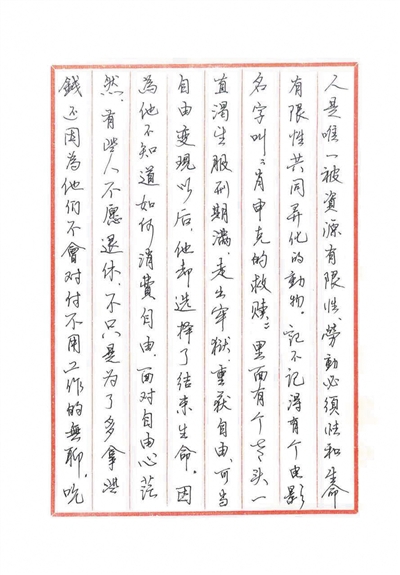 人是唯一被資源有限性、勞動必須性和生命
有限性共同异化的動物。記不記得有个电影
名字叫“肖申克的救赎”里面有个老头一
直渴服刑期满,走出牢狱,重获自由,可当
自由变现以后,他却选择了结束生命。因
為他不知道如何消費自由,面对自由心茫
然,有些人不愿退休,不只是为了多拿些
錢还因為他们不會对付不用工作的無聊。吃